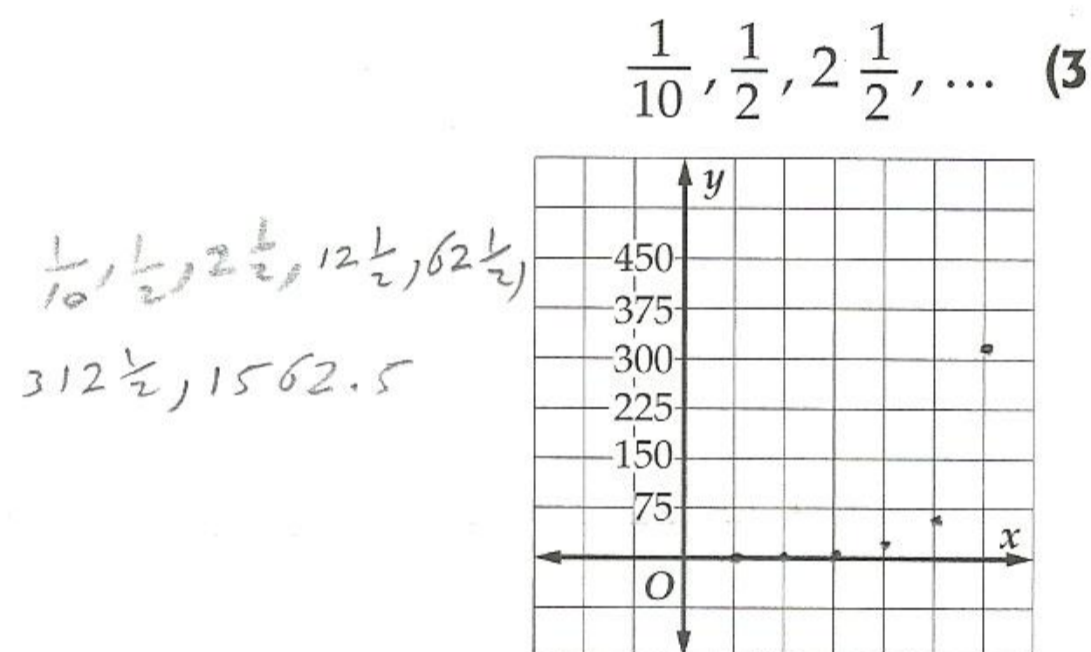 1/10, 1/2, 2 1/2, ... (3
y
1/10, 1/2, 2 1/2, 12 1/2, 62 1/2,
312 1/2, 1562.5
450
375
300
225
150
75
x
O